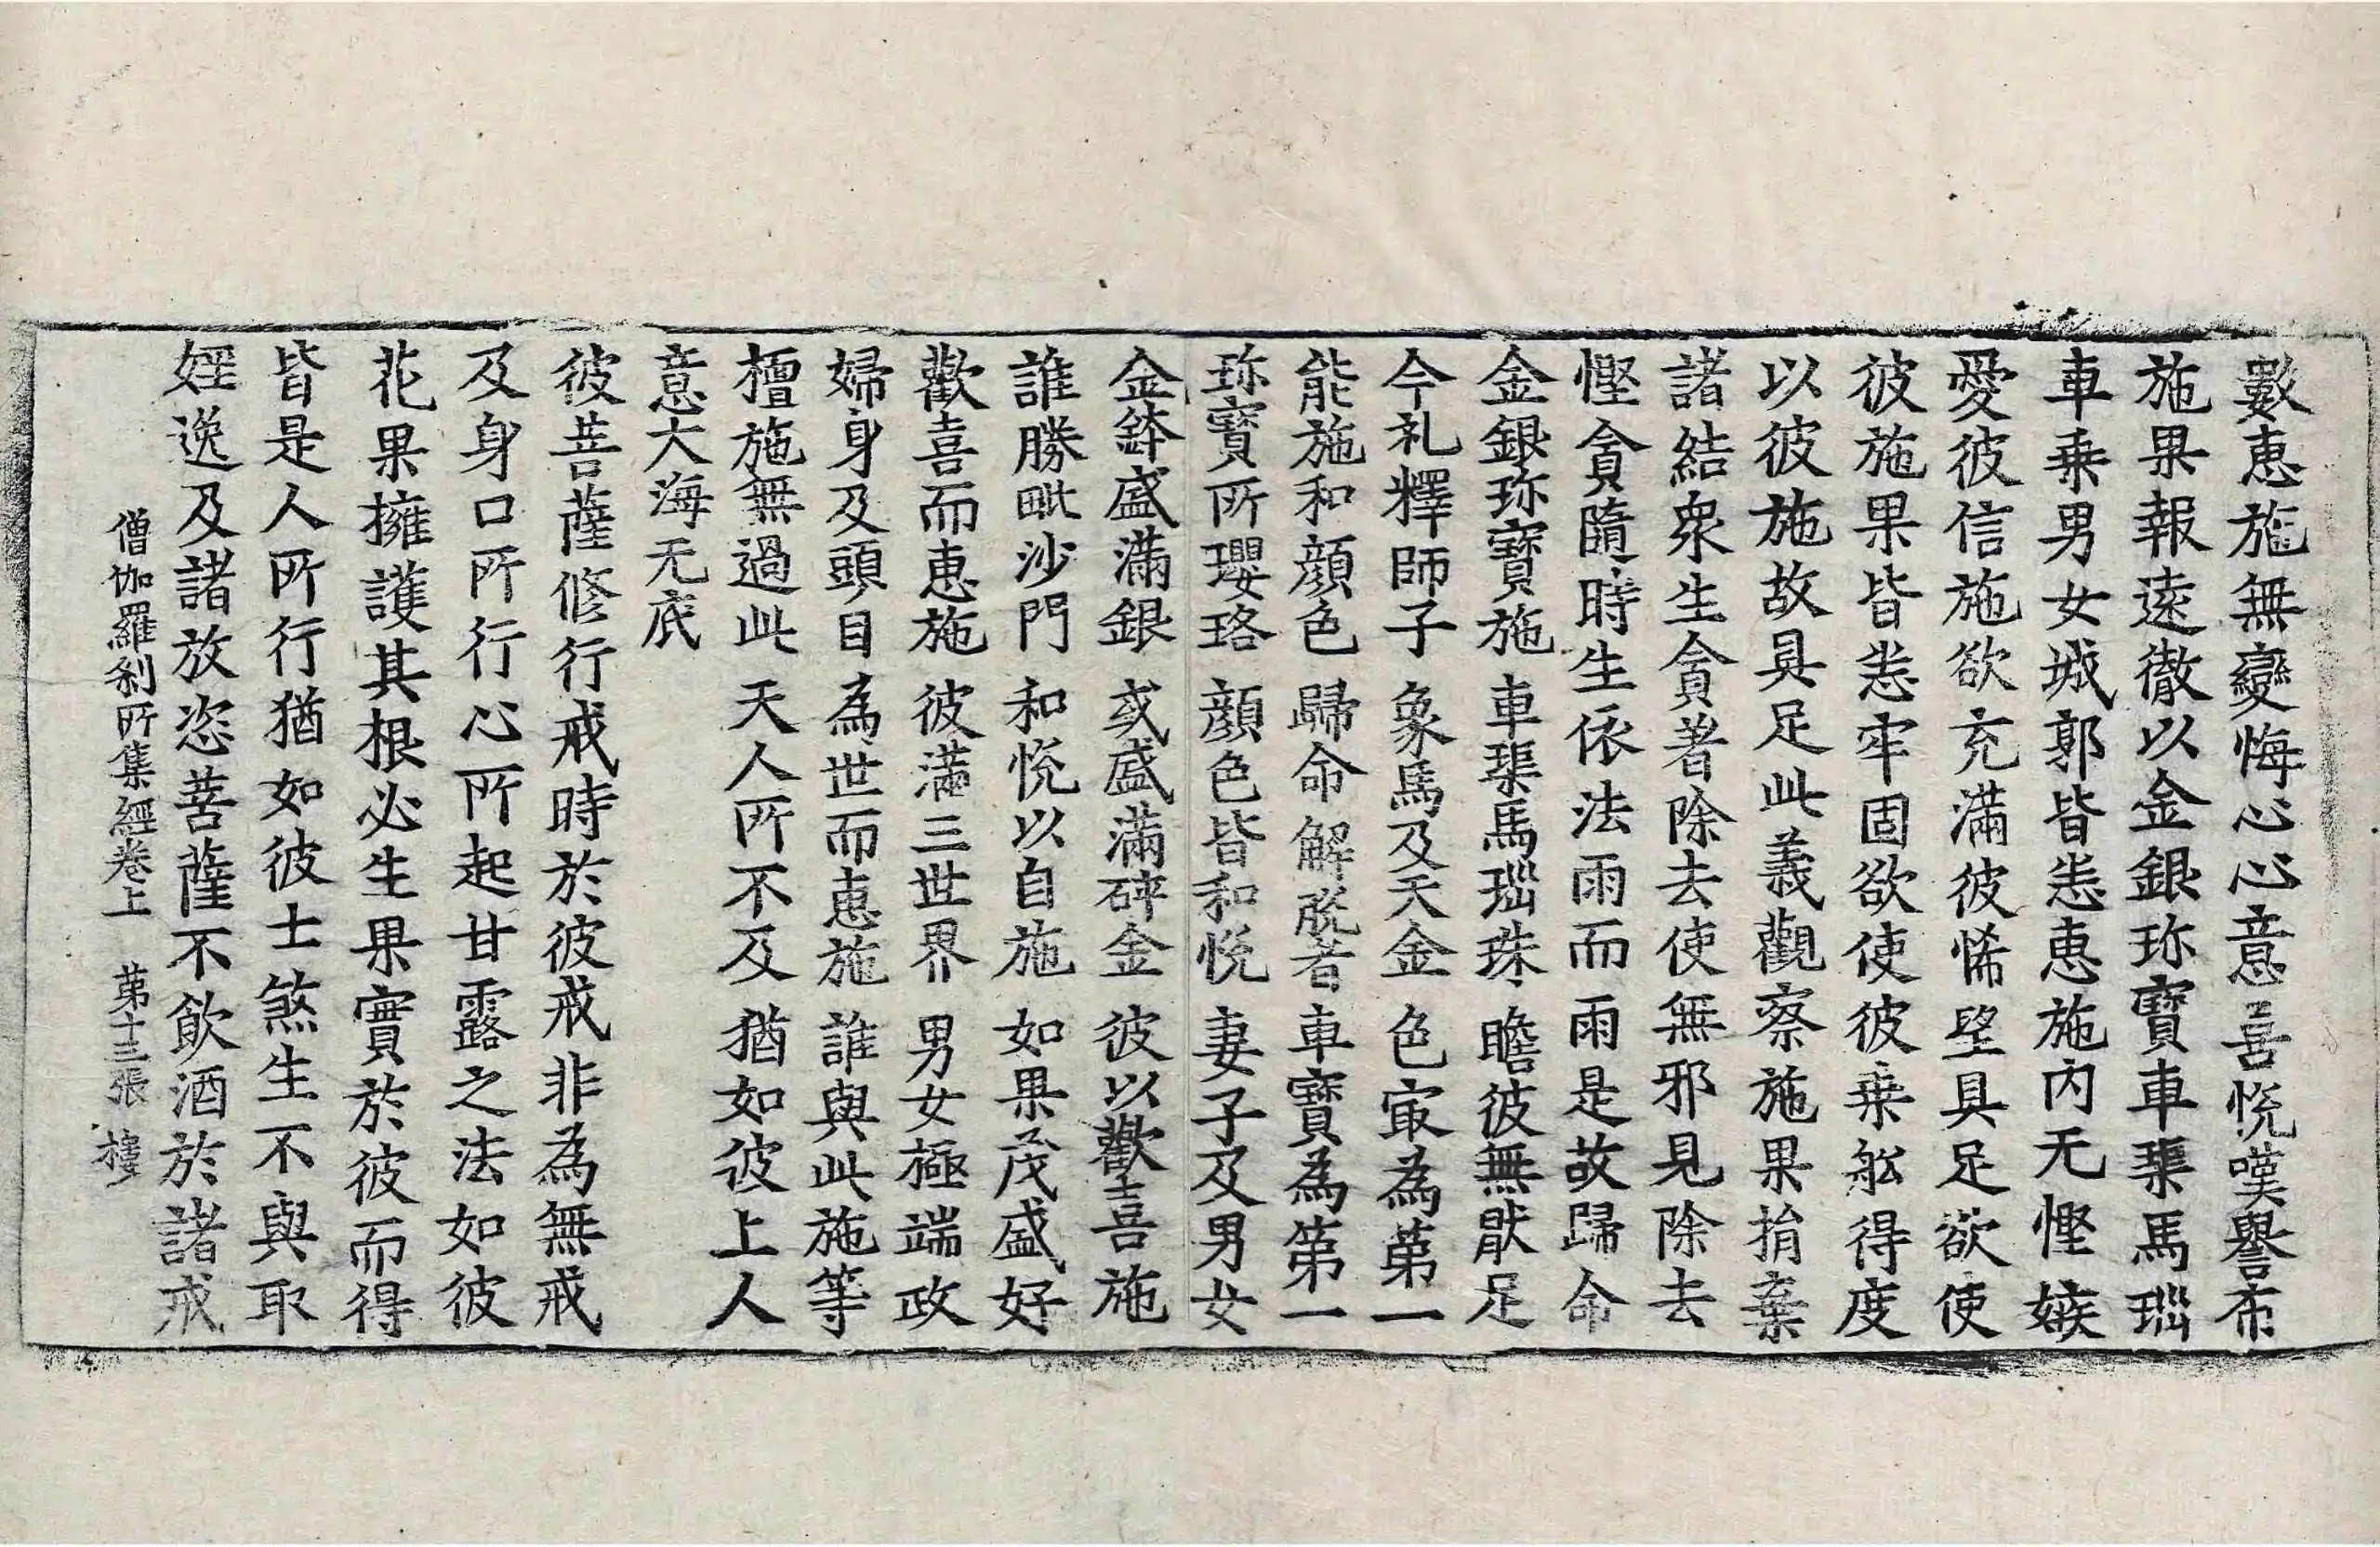 數惠施無變悔心心意喜悅嘆譽布
施果報遠徹以金銀珎寶車𤦲馬瑙
車乗男女城郭皆悉惠施內无慳嫉
愛彼信施欲充滿彼悕望具足欲使
彼施果皆悉牢固欲使彼乗舩得度
以彼施故具足此義觀察施果捐棄
諸結衆生貪著除去使無邪見除去
慳貪隨時生依法雨而雨是故歸命
金銀珎寶施 車𤦲馬瑙珠 瞻彼無猒足
今礼釋師子 象馬及天金 色㝡為苐一
能施和顔色 歸命解脫者 車寶為第一
珎寶所瓔珞 顔色皆和悅 妻子及男女
金鉢盛滿銀 或盛滿碎金 彼以歡喜施
誰勝毗沙門 和悅以自施 如果茂盛好
歡喜而惠施 彼滿三世界 男女極端政
婦身及頭目 為世而惠施 誰與此施等
檀施無過此 天人所不及 猶如彼上人
意大海无底
彼菩薩修行戒時於彼戒非為無戒
及身口所行心所起甘露之法如彼
花果擁護其根必生果實於彼而得
皆是人所行猶如彼士煞生不與取
婬逸及諸放恣菩薩不飲酒於諸戒
僧伽羅刹所集經卷上 苐十三張 樓